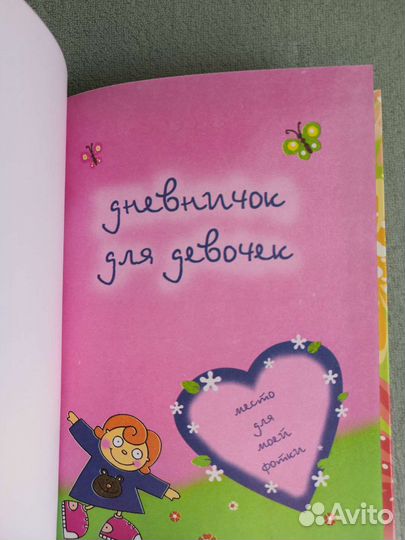 дневничок
для девочек
место
для
моей
фотки
Avito